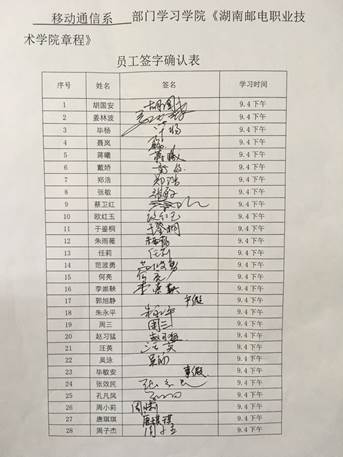 移动通信系 部门学习学院《湖南邮电职业技
术学院章程》
员工签字确认表
序号 姓名 签名 学习时间
1 胡国安 胡国安 9.4下午
2 姜林波 9.4下午
3 毕杨 毕杨 9.4下午
4 聂岚 9.4下午
5 蒋曦 蒋曦 9.4下午
6 戴娇 9.4下午
7 郑浩 郑浩 9.4下午
8 张敏 张敏 9.4下午
9 蔡卫红 9.4下午
10 欧红玉 9.4下午
11 于鉴桐 于鉴桐 9.4下午
12 朱雨薇 9.4下午
13 任莉 任莉 9.4下午
14 范波勇 范波勇 9.4下午
15 何亮 何亮 9.4下午
16 李雅鞅 9.4下午
17 郭旭静 事假 9.4下午
18 朱永平 朱永平 9.4下午
19 周三 周三 9.4下午
20 赵习猛 赵习猛 9.4下午
21 汪英 汪英 9.4下午
22 吴泳 9.4下午
23 毕敏安 事假 9.4下午
24 张效民 9.4下午
25 孔凡凤 9.4下午
26 周小莉 9.4下午
27 唐琪琪 唐琪琪 9.4下午
28 周子杰 9.4下午